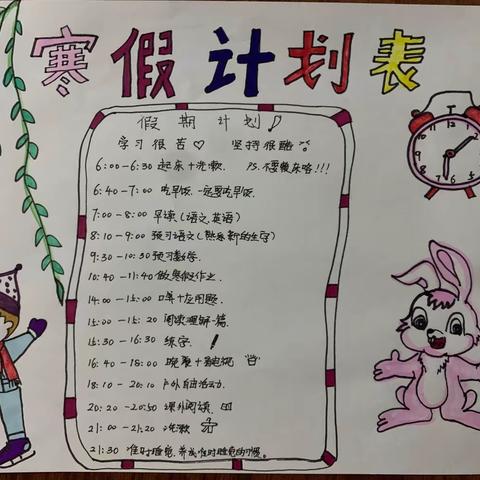 寒假计划表
假期计划
学习很苦♡ 坚持很酷
6:00-6:30 起床+洗漱. PS.不要赖床哈!!!
6:40-7:00 吃早饭.一定要吃早饭.
7:00-8:00 早读(语文,英语)
8:10-9:00 预习语文(熟悉新的生字)
9:30-10:30 预习数学.
10:40-11:40 做寒假作业.
14:00-15:00 口算+应用题.
15:00-15:20 阅读理解一篇.
15:30-16:30 练字.
16:40-18:00 晚餐+看电视
18:10-20:10 户外自由活动.
20:20-20:50 课外阅读.
21:00-21:20 洗漱
21:30 准时睡觉.养成准时睡觉的习惯。